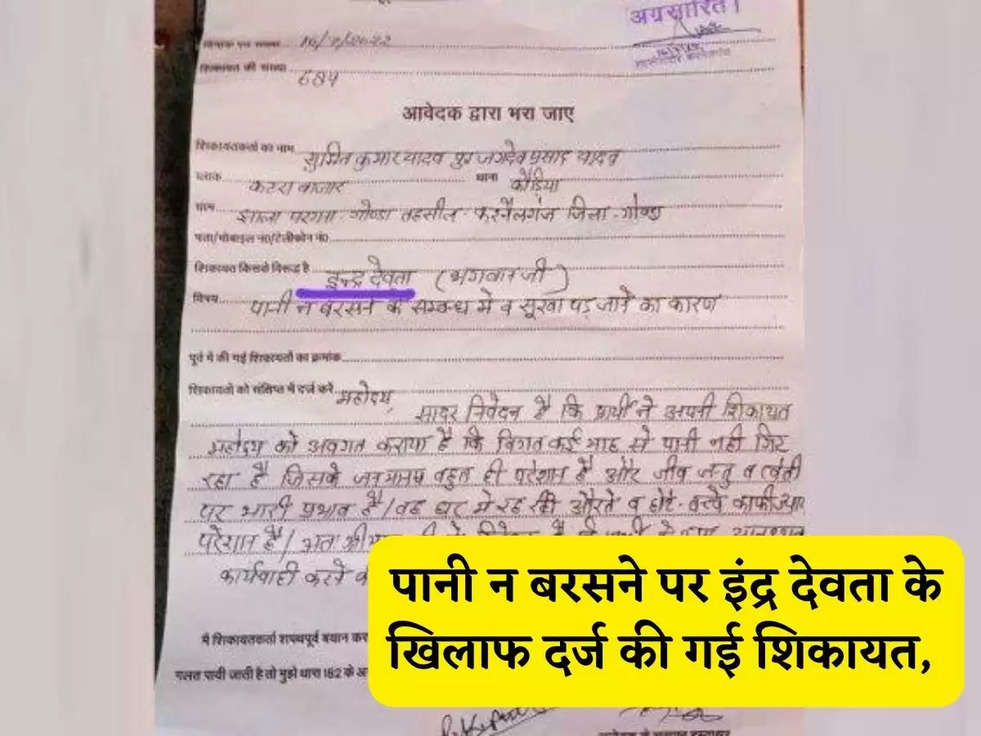 अग्रसारित।
दिनांक एवं समय 16/7/2022
शिकायत की संख्या 684
आवेदक द्वारा भरा जाए
शिकायतकर्ता का नाम सुमित कुमार यादव पुत्र जगदेव प्रसाद यादव
ब्लाक कटरा बाजार थाना कौड़िया
ग्राम झाला परगना गोण्डा तहसील-करनैलगंज जिला-गोण्डा
पता/मोबाइल नं0/टेलीफोन नं0
शिकायत किसके विरूद्ध है इन्द्र देवता (भगवान जी)
विषय पानी न बरसने के सम्बन्ध में व सूखा पड़ जाने का कारण
पूर्व में की गई शिकायतों का क्रमांक
शिकायतों को संक्षिप्त में दर्ज करें महोदय,
सादर निवेदन है कि प्रार्थी ने अपनी शिकायत
महोदय को अवगत कराया है कि विगत कई माह से पानी नहीं गिर
रहा है जिसके जनमानस बहुत ही परेशान है और जीव जन्तु व खेती
पर भारी प्रभाव है/वह घर में रह रही औरते व छोटे-बच्चे काफी
परेशान है/ अतः
कार्यवाही करने
पानी न बरसने पर इंद्र देवता के
खिलाफ दर्ज की गई शिकायत,
मैं शिकायतकर्ता शपथपूर्व बयान
गलत पायी जाती है तो मुझे धारा 182 के